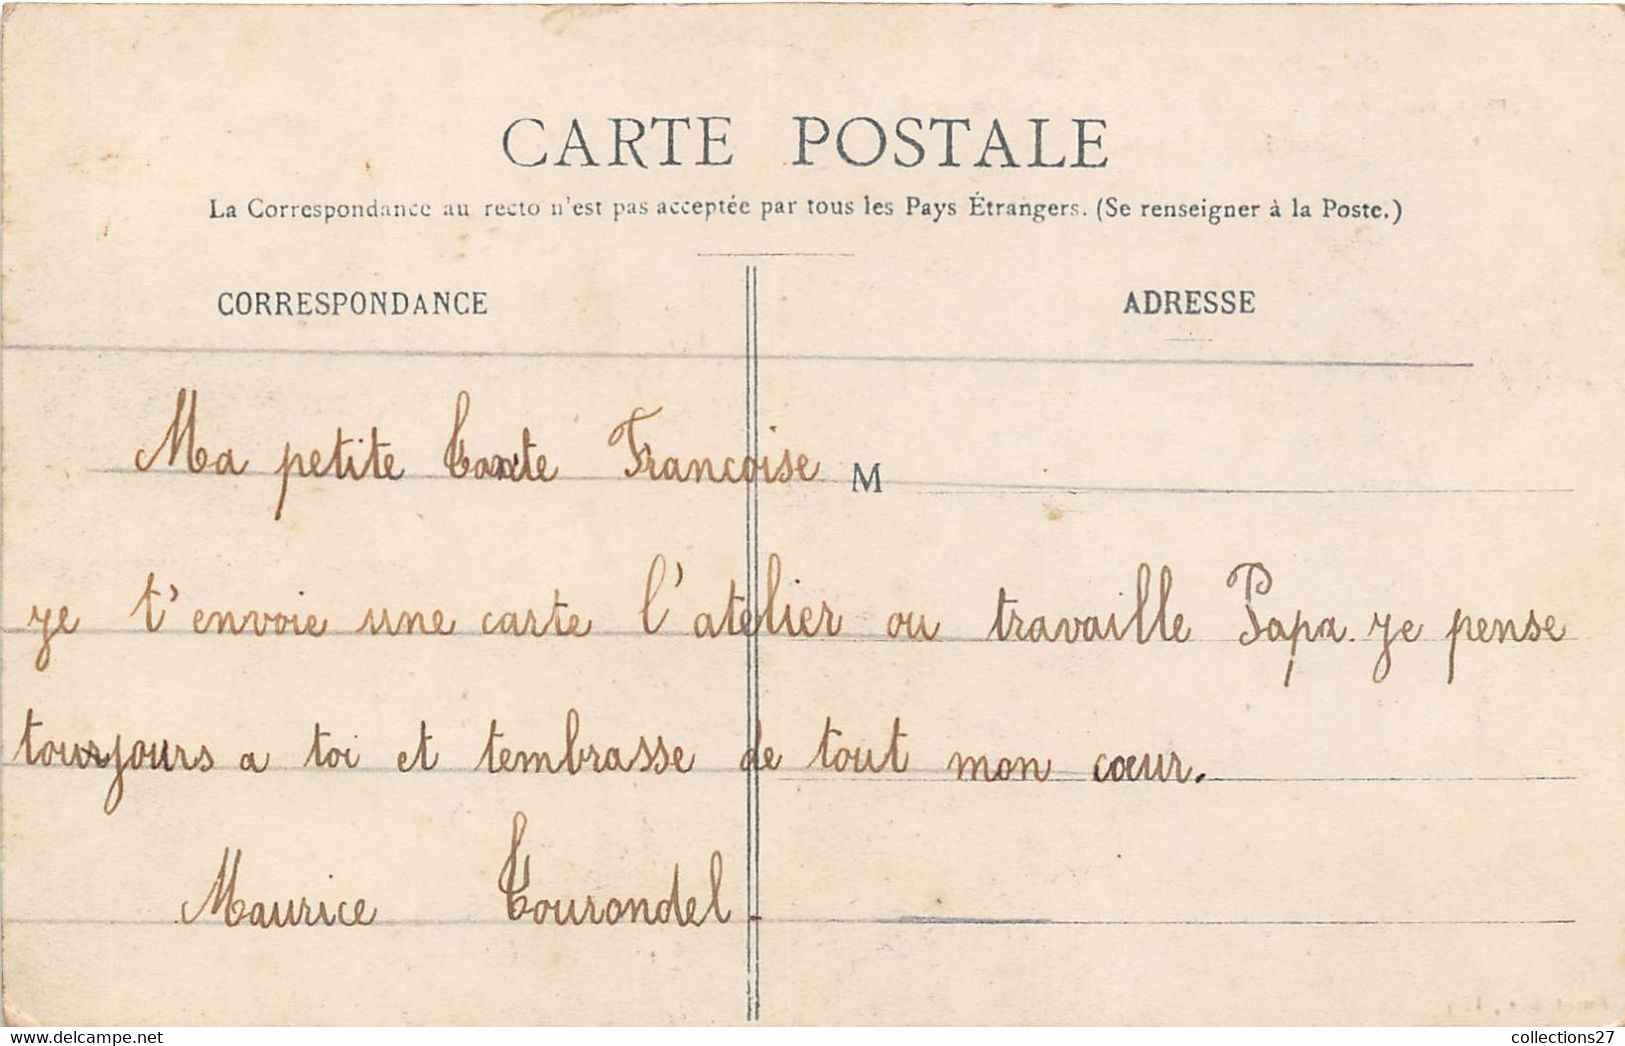 CARTE POSTALE
La Correspondance au recto n'est pas acceptée par tous les Pays Étrangers. (Se renseigner à la Poste.)
CORRESPONDANCE
ADRESSE
Ma petite Tante Françoise
M
je t'envoie une carte l'atelier ou travaille Papa. je pense
toujours a toi et tembrasse de tout mon cœur.
Maurice Tourondel
www.delcampe.net
collections27